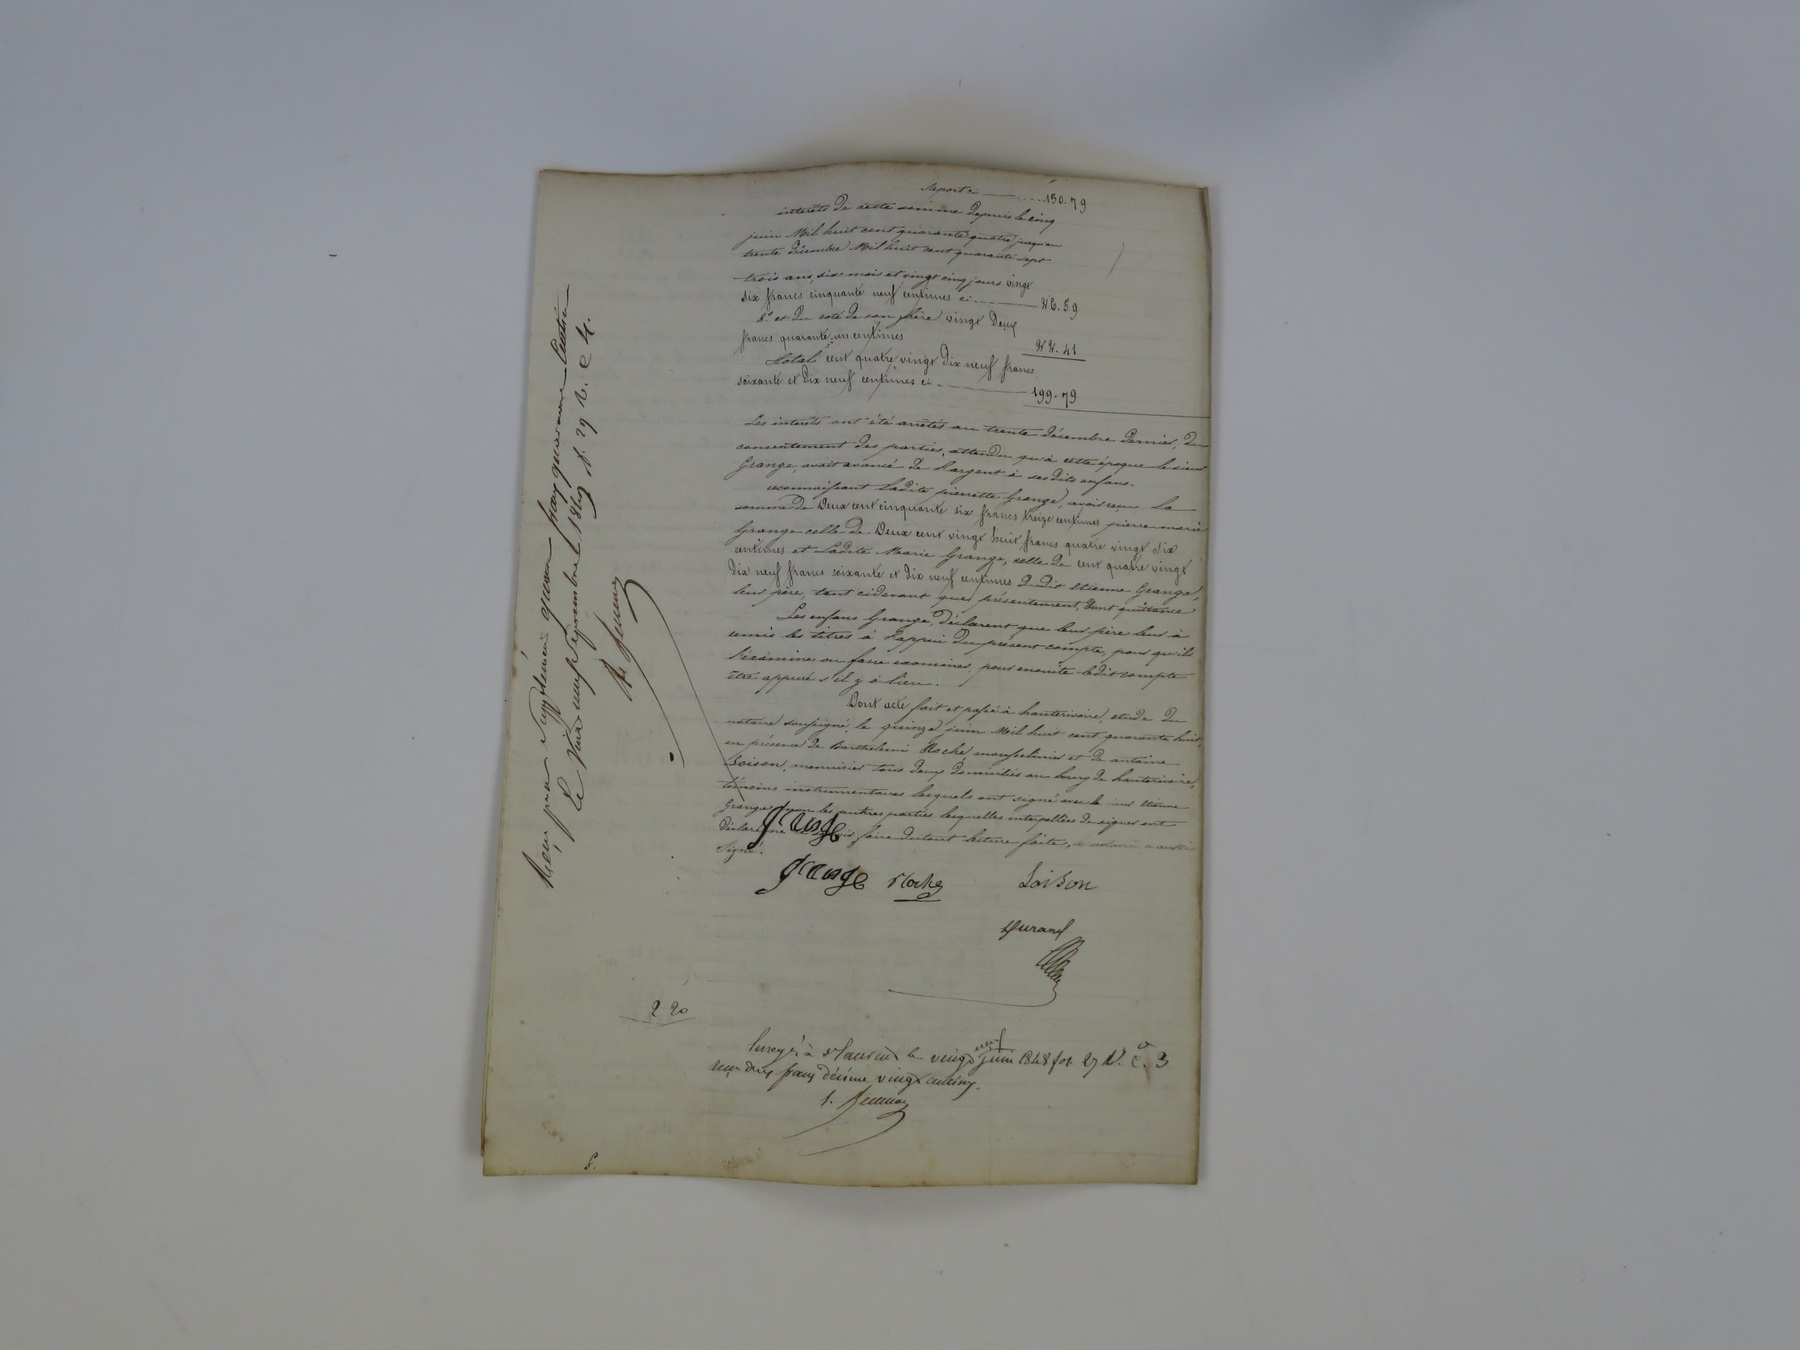 Report ci ........ 150.79
interets de cette somme depuis le cinq
juin Mil huit cent quarante quatre jusqu'au
trente décembre Mil huit cent quarante sept
trois ans, six mois et vingt cinq jours vingt
six francs cinquante neuf centimes ci 26.59
et du coté de son frère vingt Deux
francs quarante un centimes 22.41
Total cent quatre vingt Dix neuf francs
soixante et Dix neuf centimes ci 199.79
Les interets ont été arrêtés au trente décembre dernier, du
consentement des parties, attendu qu'à cette époque le sieur
Grange, avait avancé de l'argent à ses dits enfans.
reconnaissant ladite pierrette Grange, avoir reçu la
somme de Deux cent cinquante six francs treize centimes pierre marie
Grange celle de Deux cent vingt huit francs quatre vingt dix
centimes et Ladite Marie Grange, celle de cent quatre vingt
Dix neuf francs soixante et dix neuf centimes dudit Etienne Grange,
leur père, tant cidevant que présentement, Dont quittance
Les enfans Grange, déclarent que leur père leur à
remis les titres à l'appui du présent compte, pour qu'ils
l'examine ou fasse examiner, pour ensuite ledit compte
être appuré s'il y à lieu.
Dont acte fait et passé à hauterivoire, etude du
notaire soussigné, le quinze juin Mil huit cent quarante huit,
en présence de Barthelemi Roche, mousselinier et de antoine
Loison, menuisier tous deux domiciliés au bourg de hauterivoire,
témoins instrumentaires lesquels ont signé avec le sieur Etienne
Grange, non les autres parties lesquelles interpellées de signer ont
déclaré ne le savoir faire de tout lecture faite, le notaire a aussi
signé.
Grange
Grange Roche Loison
Durand
2 20
Enregé à St Laurent le vingt neuf juin 1848 fol. 27 V. C. 3
reçu deux francs décime vingt centimes.
Reçu pour supplément quatre francs quarante centimes
Le Vingt neuf Septembre 1849 f. 29 R. C 4.